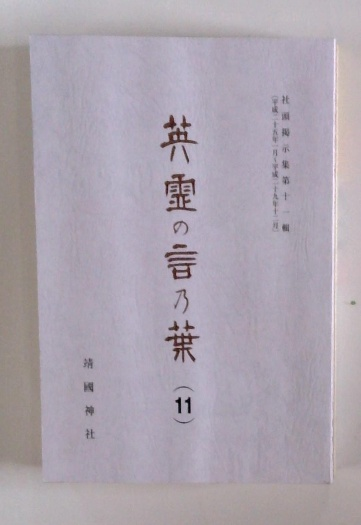 社頭掲示集第十一輯
(平成二十五年一月~平成二十九年十二月)
英霊の言乃葉
(11)
靖國神社